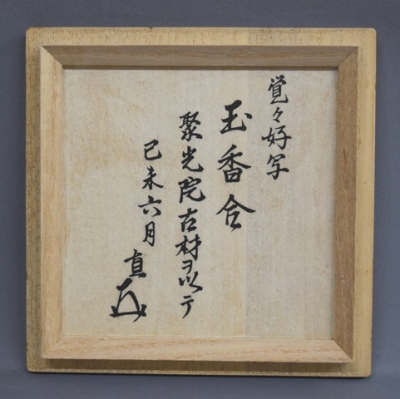 覚々好写
玉香合
聚光院古材ヲ以テ
己未六月 直